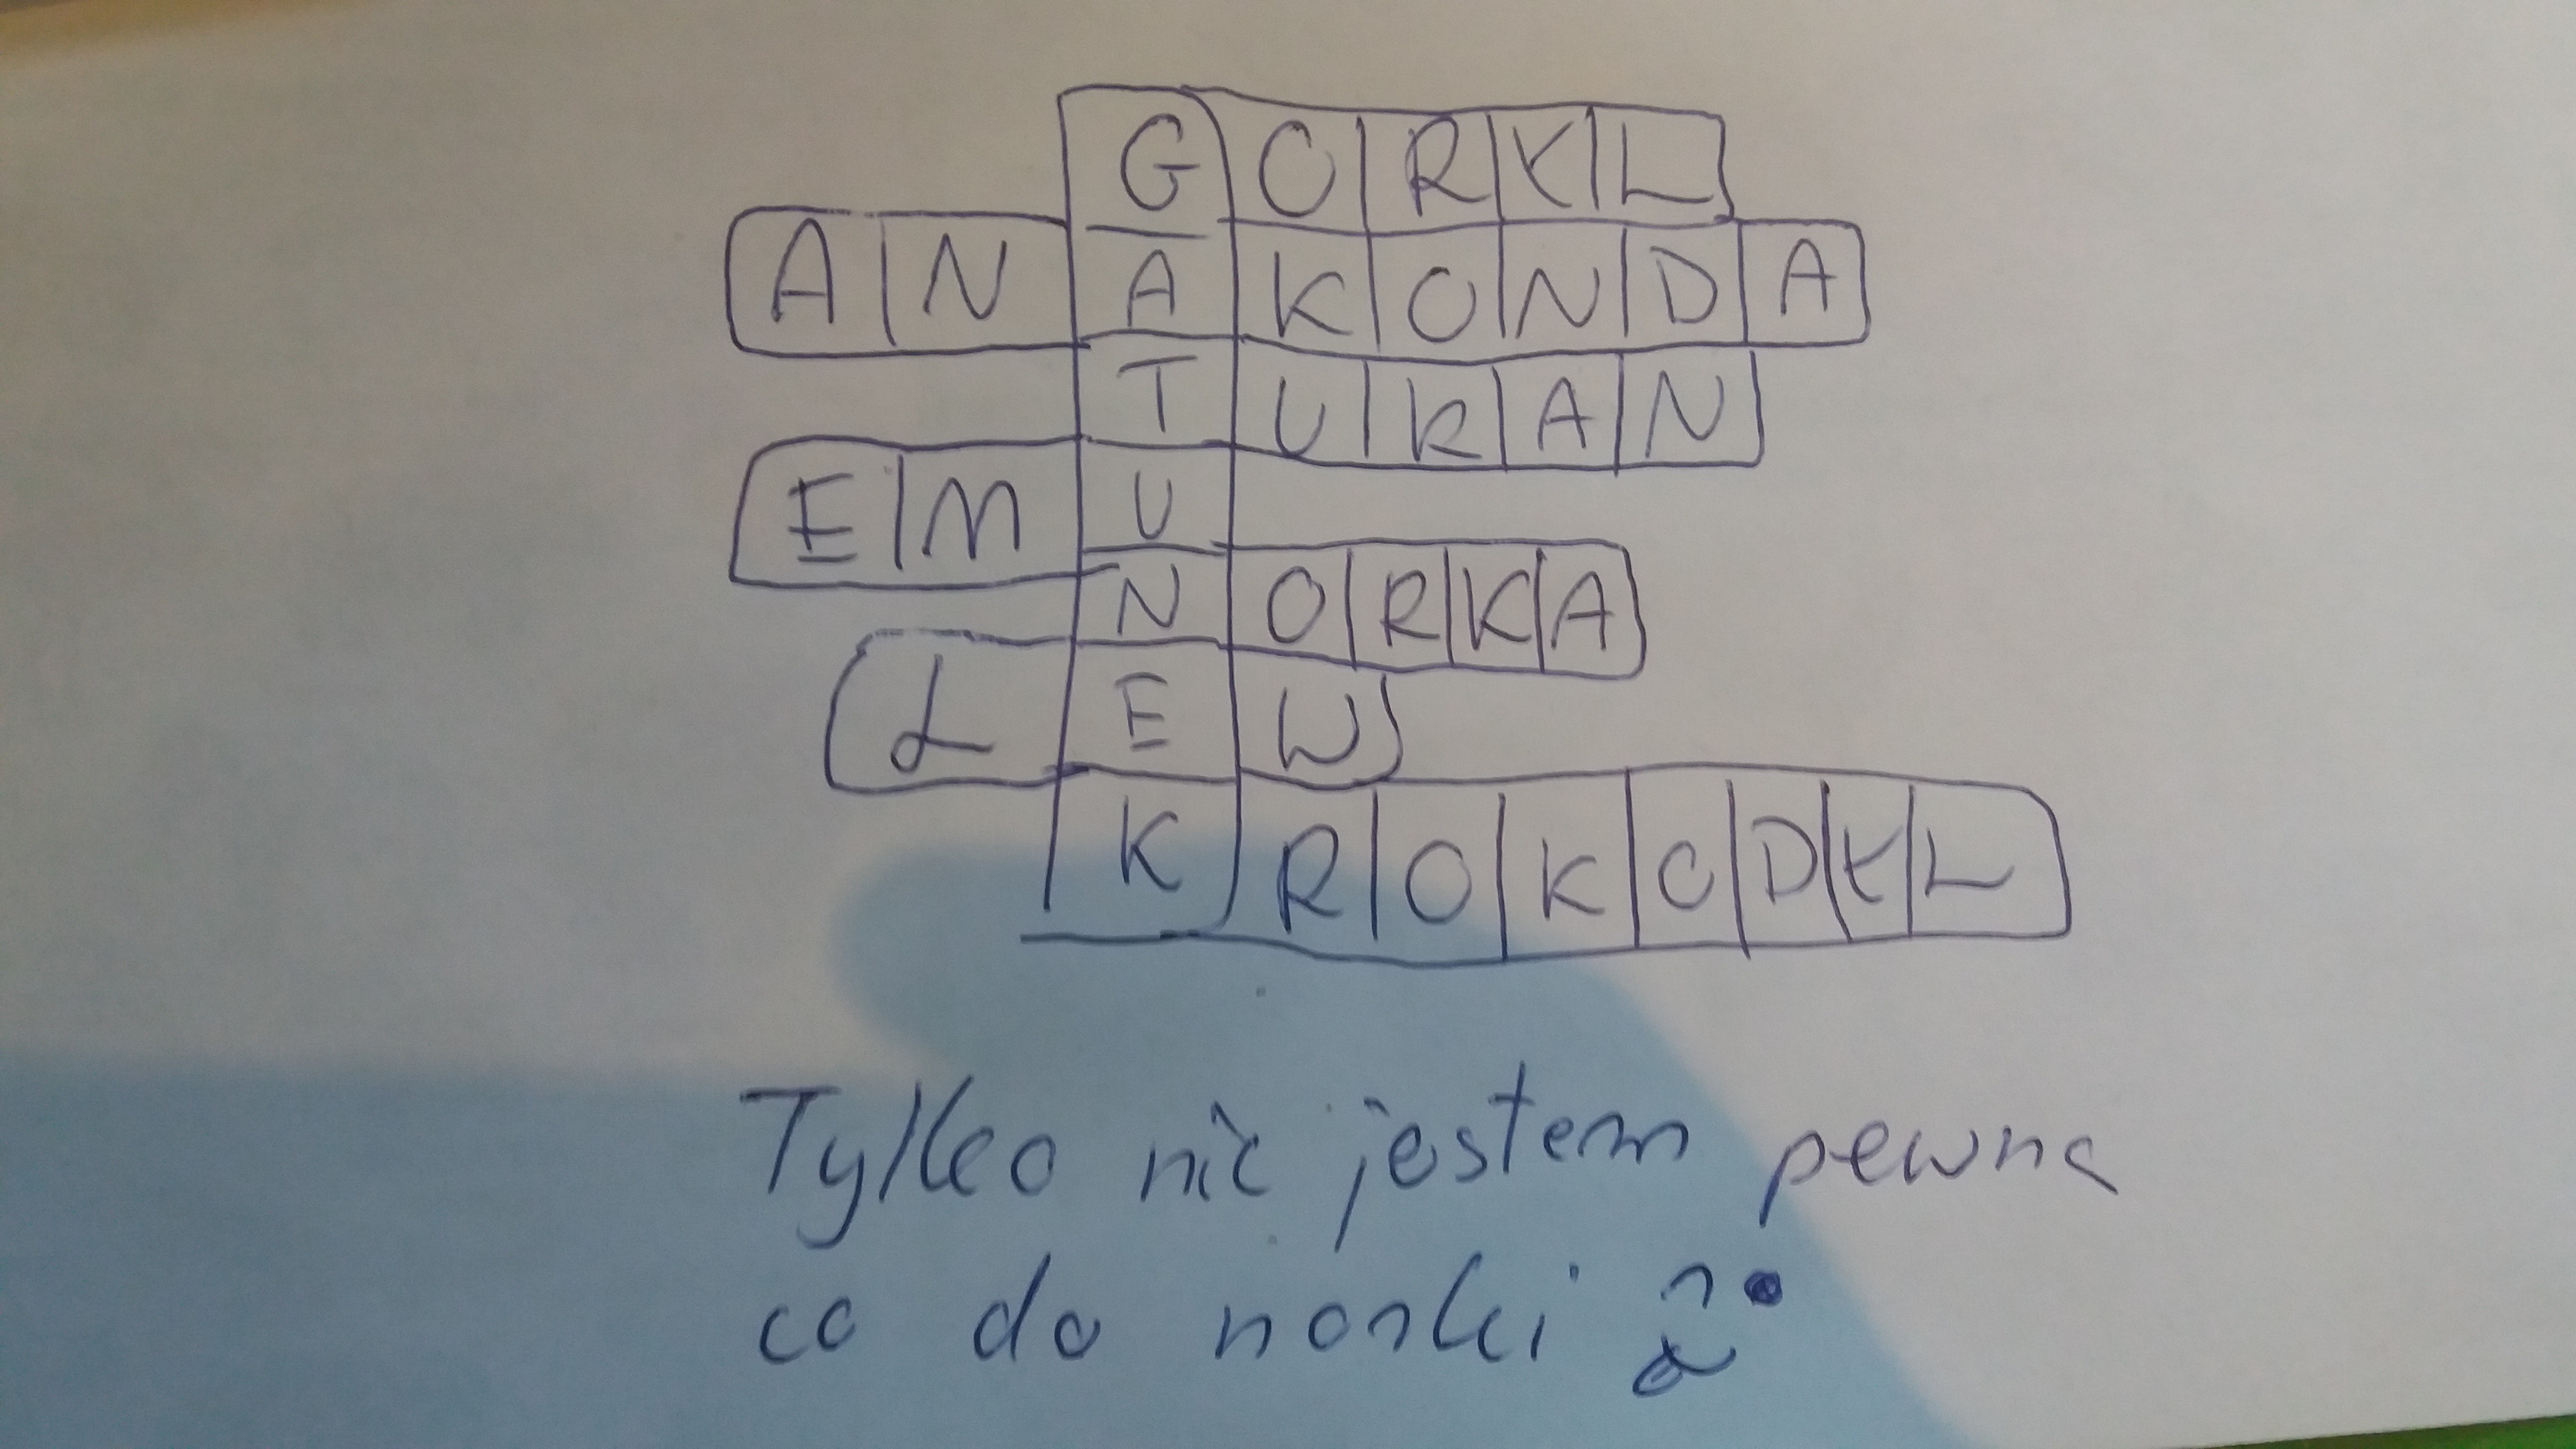 GORYL
ANAKONDA
TUKAN
EMU
NORKA
LEW
KROKODYL
Tylko nie jestem pewna
co do norki